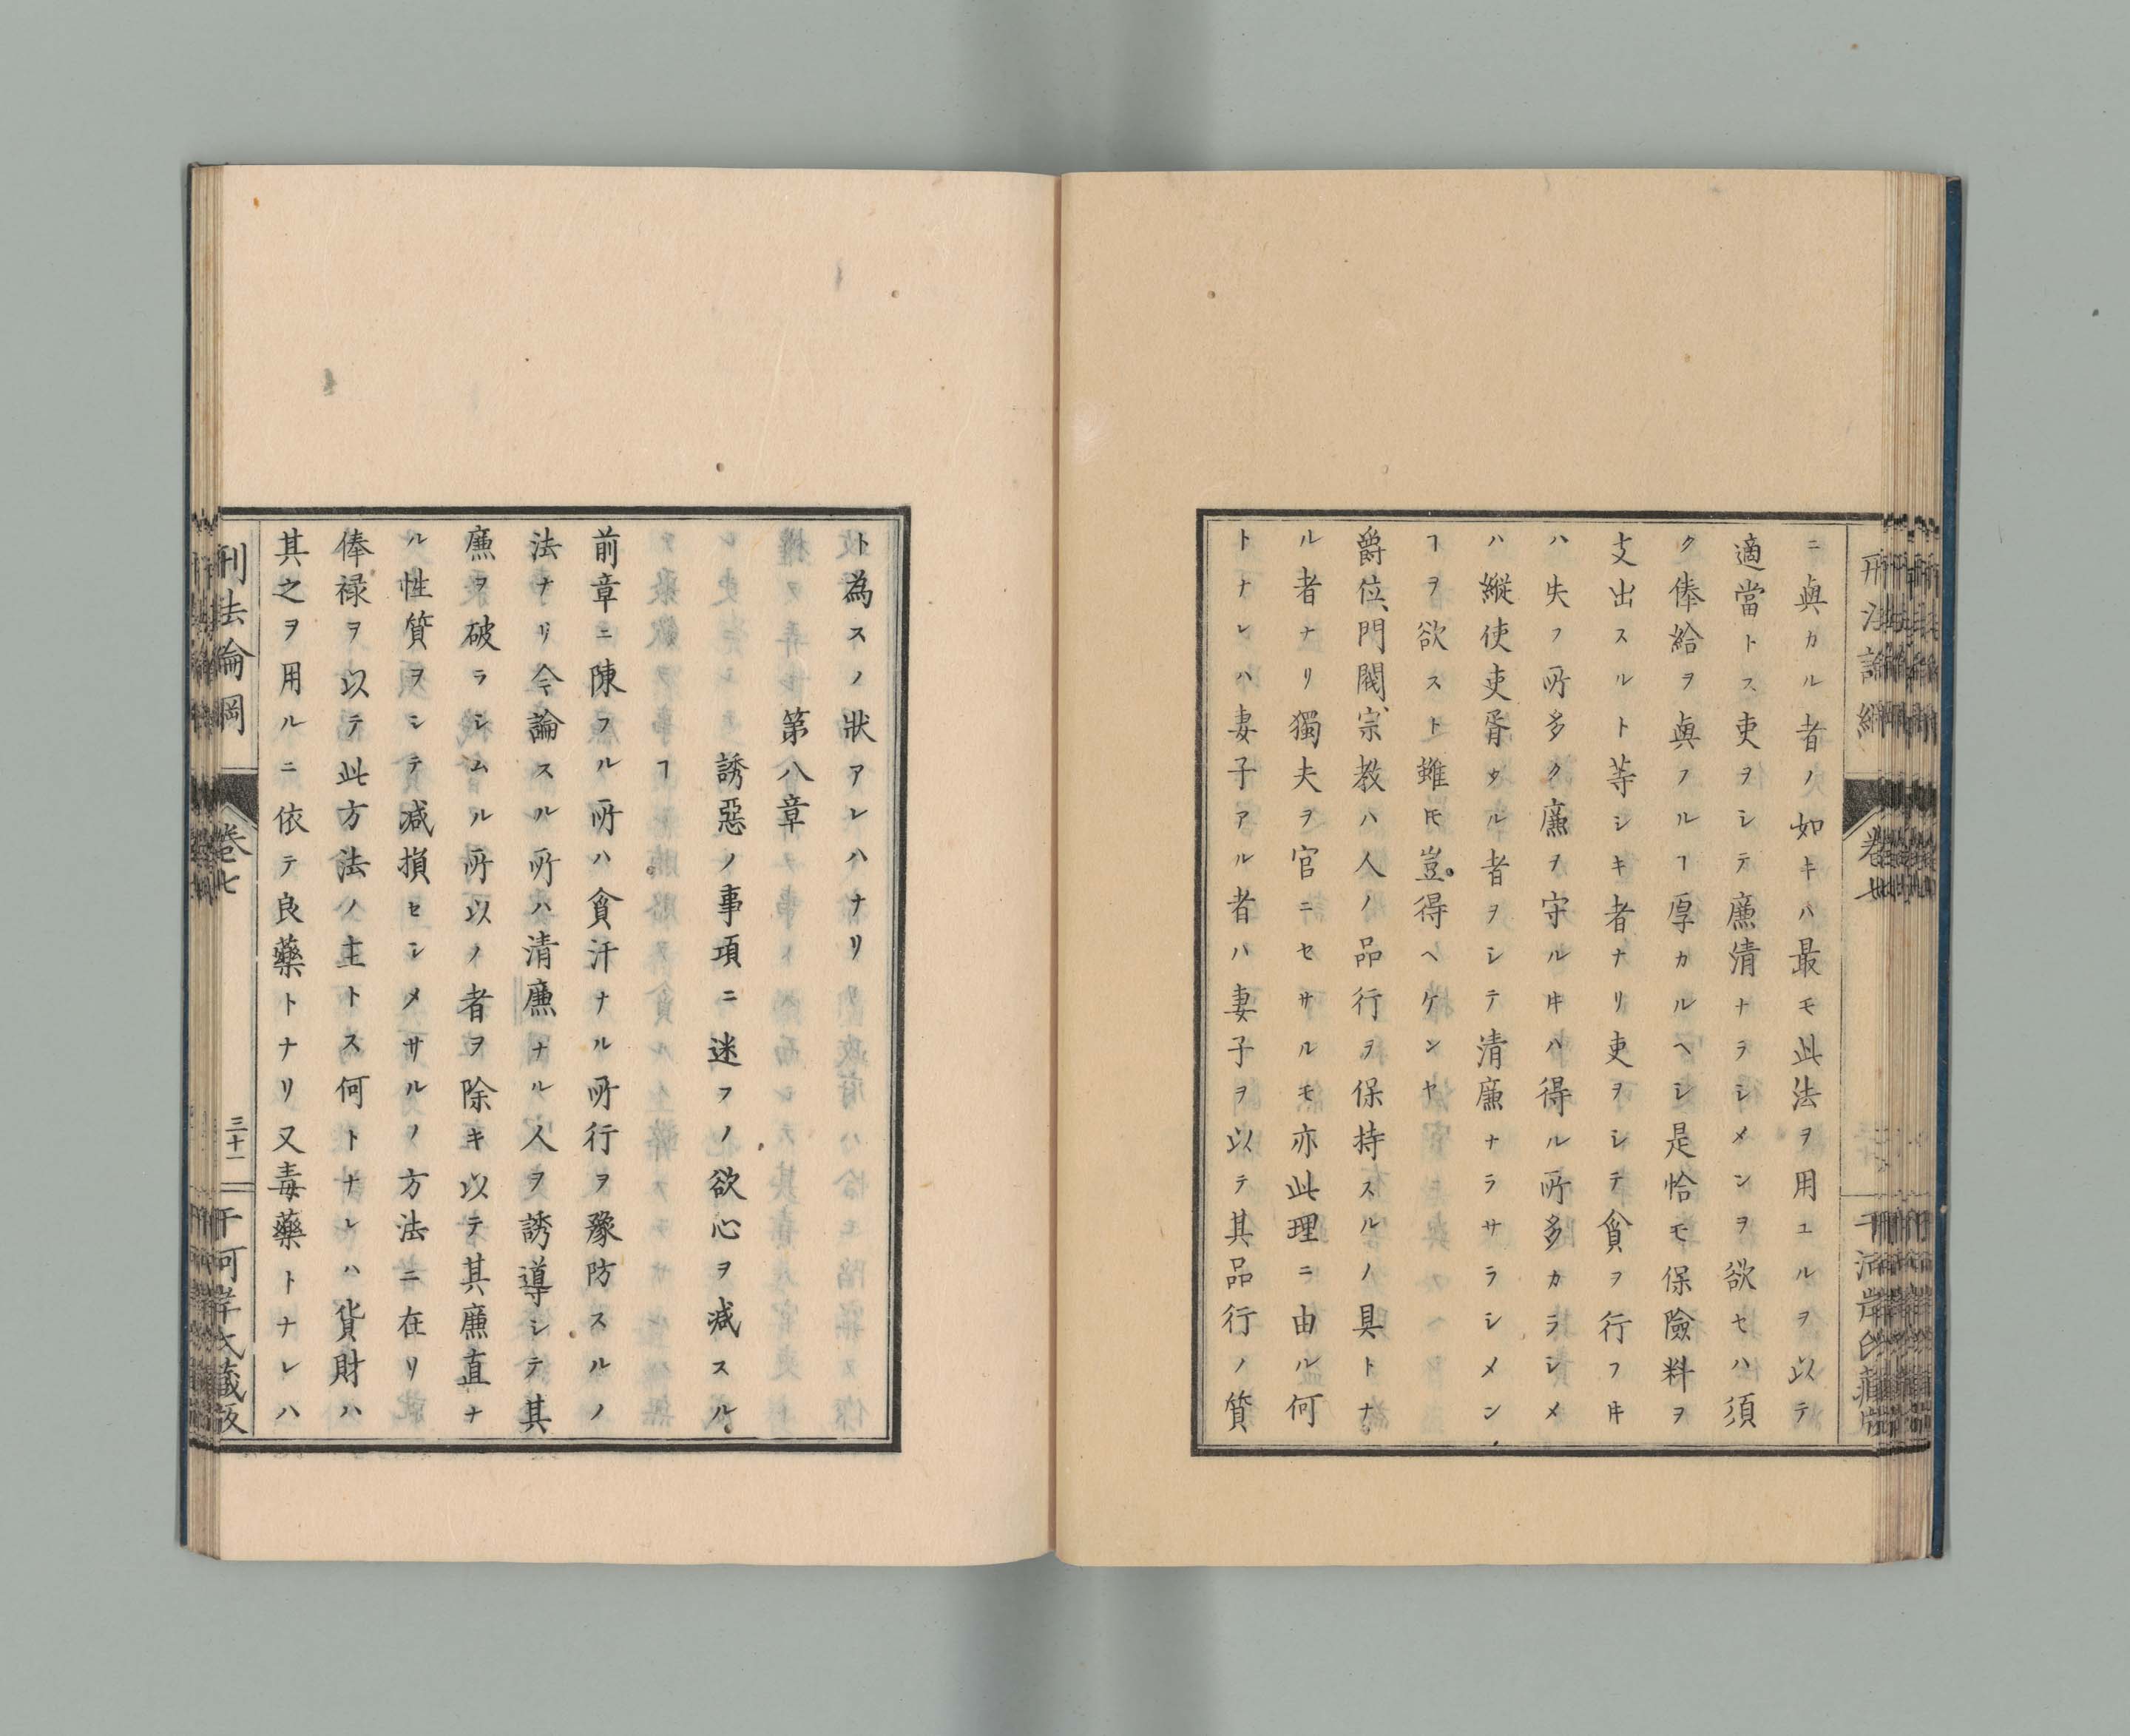 ニ與カル者ノ如キハ最モ此法ヲ用ユルヲ以テ
適當トス吏ヲシテ廉清ナラシメンヲ欲セハ須
ク俸給ヲ與フルヿ厚カルヘシ是恰モ保險料ヲ
支出スルト等シキ者ナリ吏ヲシテ貪ヲ行フヰ
ハ失フ所多ク廉ヲ守ルヰハ得ル所多カラシメ
ハ縦使吏胥タル者ヲシテ清廉ナラサラシメン
ヿヲ欲スト雖𪜈豈得ヘケンヤ
爵位、門閥、宗教ハ人ノ品行ヲ保持スルノ具トナ
ル者ナリ獨夫ヲ官ニセサルモ亦此理ニ由ル何
トナレハ妻子アル者ハ妻子ヲ以テ其品行ノ質
刑法論綱
卷七
ト為スノ狀アレハナリ
第八章
誘惡ノ事項ニ迷フノ欲心ヲ減スル
前章ニ陳フル所ハ貪汗ナル所行ヲ豫防スルノ
法ナリ今論スル所ハ清廉ナル人ヲ誘導シテ其
廉ヲ破ラシムル所以ノ者ヲ除キ以テ其廉直ナ
ル性質ヲシテ減損セシメサルノ方法ニ在リ
俸祿ヲ以テ此方法ノ主トス何トナレハ貨財ハ
其之ヲ用ルニ依テ良藥トナリ又毒藥トナレハ
刑法論綱
卷七
三十一
干河岸氏藏版